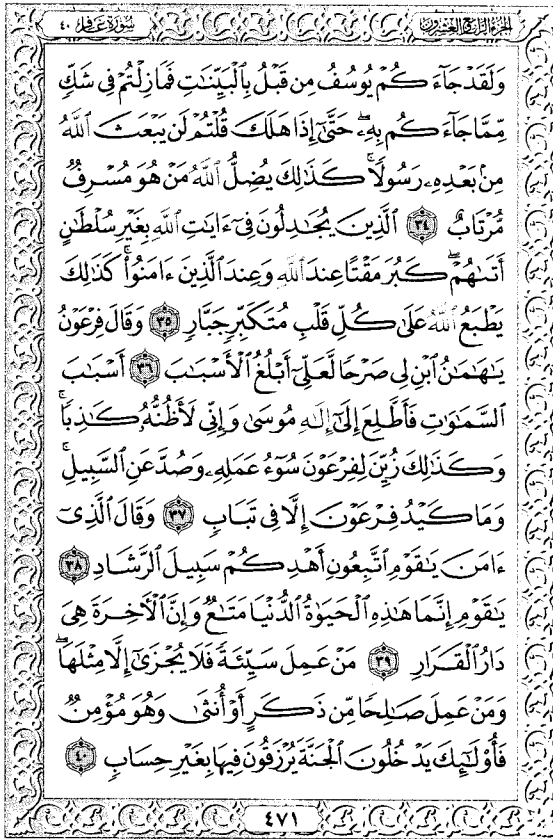 الجزء الرابع والعشرون
سورة غافر ٤٠
وَلَقَدْ جَآءَكُمْ يُوسُفُ مِن قَبْلُ بِالْبَيِّنَٰتِ فَمَا زِلْتُمْ فِى شَكٍّ
مِّمَّا جَآءَكُم بِهِۦ ۖ حَتَّىٰٓ إِذَا هَلَكَ قُلْتُمْ لَن يَبْعَثَ ٱللَّهُ
مِنۢ بَعْدِهِۦ رَسُولًا ۚ كَذَٰلِكَ يُضِلُّ ٱللَّهُ مَنْ هُوَ مُسْرِفٌ
مُّرْتَابٌ ٣٤ ٱلَّذِينَ يُجَٰدِلُونَ فِىٓ ءَايَٰتِ ٱللَّهِ بِغَيْرِ سُلْطَٰنٍ
أَتَىٰهُمْ ۖ كَبُرَ مَقْتًا عِندَ ٱللَّهِ وَعِندَ ٱلَّذِينَ ءَامَنُوا۟ ۚ كَذَٰلِكَ
يَطْبَعُ ٱللَّهُ عَلَىٰ كُلِّ قَلْبِ مُتَكَبِّرٍ جَبَّارٍ ٣٥ وَقَالَ فِرْعَوْنُ
يَٰهَٰمَٰنُ ٱبْنِ لِى صَرْحًا لَّعَلِّىٓ أَبْلُغُ ٱلْأَسْبَٰبَ ٣٦ أَسْبَٰبَ
ٱلسَّمَٰوَٰتِ فَأَطَّلِعَ إِلَىٰٓ إِلَٰهِ مُوسَىٰ وَإِنِّى لَأَظُنُّهُۥ كَٰذِبًا ۚ
وَكَذَٰلِكَ زُيِّنَ لِفِرْعَوْنَ سُوٓءُ عَمَلِهِۦ وَصُدَّ عَنِ ٱلسَّبِيلِ ۚ
وَمَا كَيْدُ فِرْعَوْنَ إِلَّا فِى تَبَابٍ ٣٧ وَقَالَ ٱلَّذِىٓ
ءَامَنَ يَٰقَوْمِ ٱتَّبِعُونِ أَهْدِكُمْ سَبِيلَ ٱلرَّشَادِ ٣٨
يَٰقَوْمِ إِنَّمَا هَٰذِهِ ٱلْحَيَوٰةُ ٱلدُّنْيَا مَتَٰعٌ وَإِنَّ ٱلْءَاخِرَةَ هِىَ
دَارُ ٱلْقَرَارِ ٣٩ مَنْ عَمِلَ سَيِّئَةً فَلَا يُجْزَىٰٓ إِلَّا مِثْلَهَا ۖ
وَمَنْ عَمِلَ صَٰلِحًا مِّن ذَكَرٍ أَوْ أُنثَىٰ وَهُوَ مُؤْمِنٌ
فَأُو۟لَٰٓئِكَ يَدْخُلُونَ ٱلْجَنَّةَ يُرْزَقُونَ فِيهَا بِغَيْرِ حِسَابٍ ٤٠
٤٧١